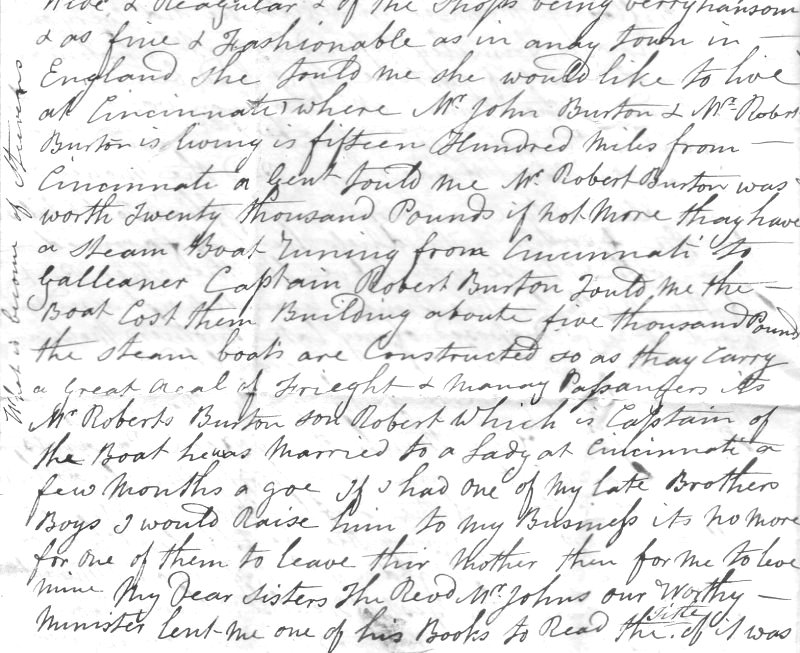 Wide & Reagular & of the Shops being verry hansom
& as fine & Fashionable as in anay town in —
England she tould me she would like to live
at Cincinnati where Mr John Burton & Mr Robert
Burton is living is fifteen Hundred Miles from —
Cincinnati a Gent tould me Mr Robert Burton was
worth Twenty thousand Pounds if not More thay have
a Steam Boat Runing from Cincinnati to
Galleaner Captain Robert Burton Tould me the —
Boat Cost them Building aboute five thousand Pound
the steam boats are Constructed so as thay Carry
a great deal of Frieght & Manay Passangers its
Mr Roberts Burton son Robert Which is Captain of
the Boat he was Married to a Lady at Cincinnati a
few Months a goe If I had one of My late Brothers
Boys I would Raise him to my Business its no more
for one of them to leave thir Mother then for me to leve
mine My Dear Sisters The Revd Mr Johns our Worthy —
Minister lent me one of his Books to Read the title of it was
What is become of